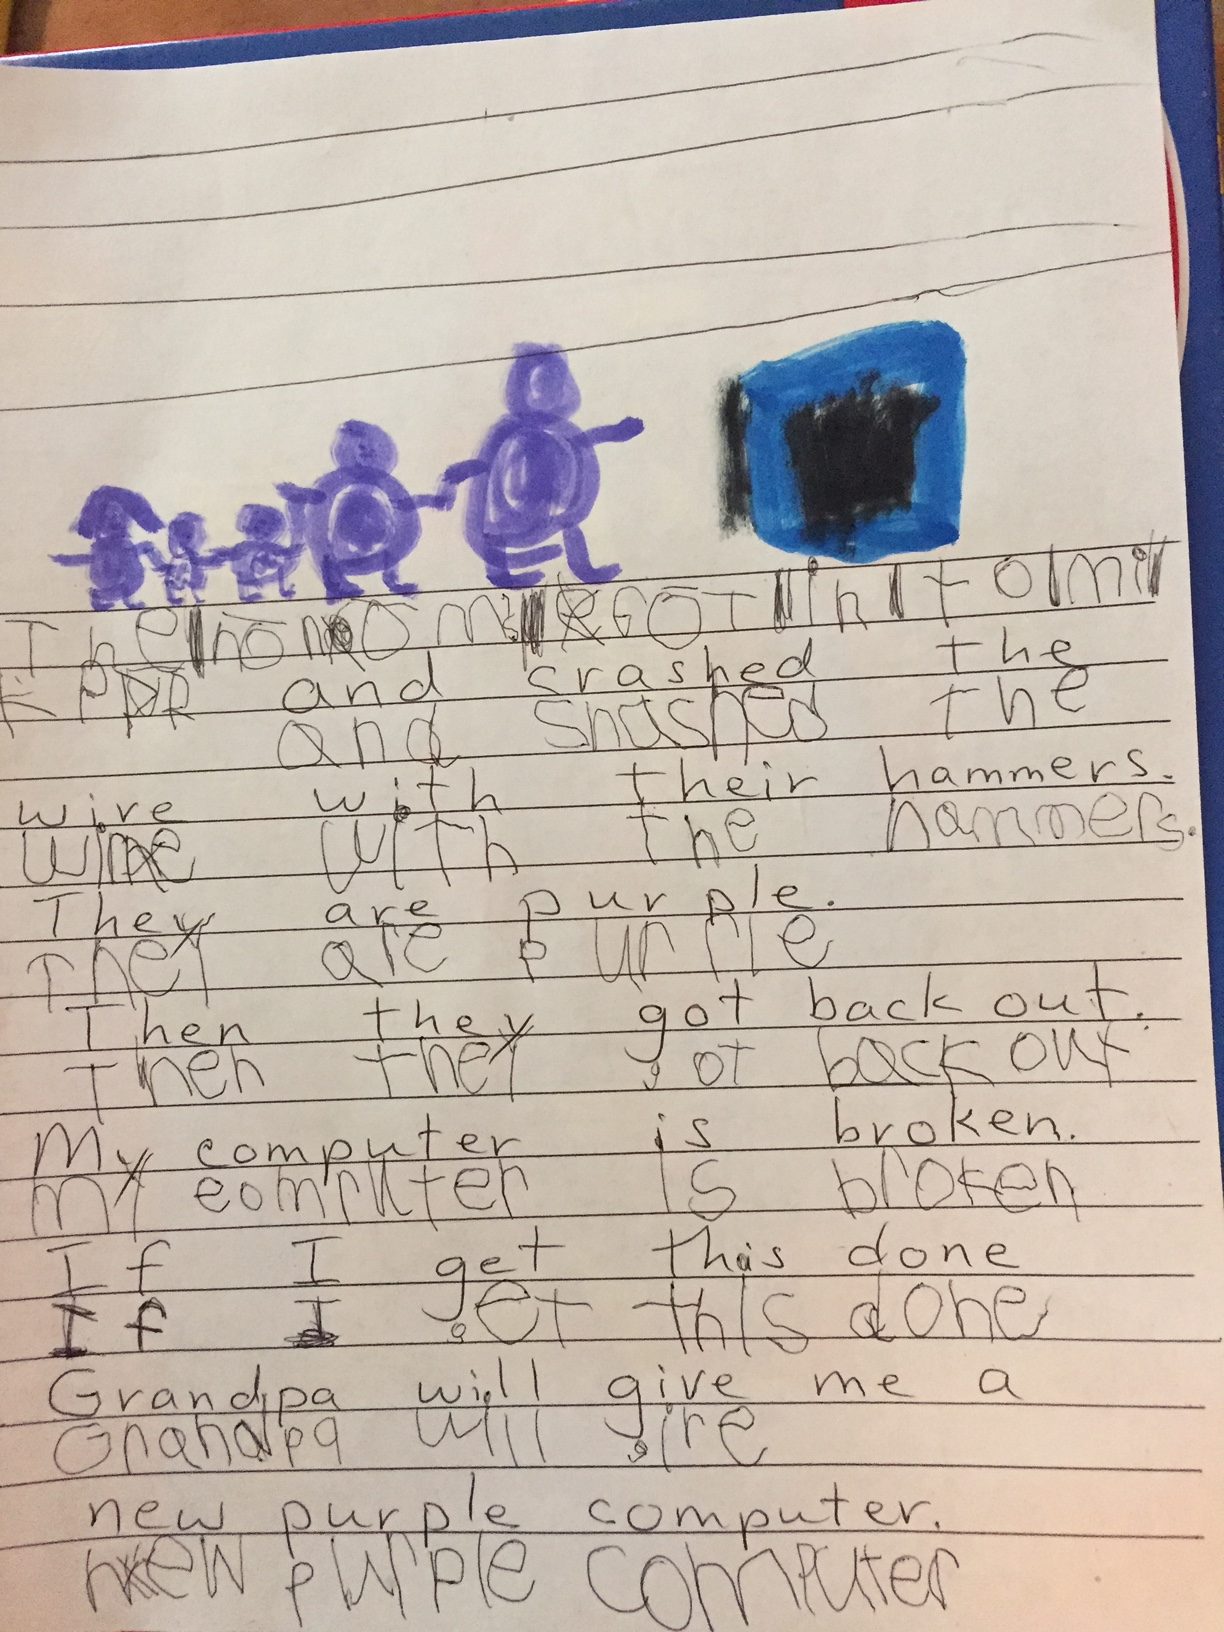 The GOT in to mi
and crashed the
and the
wire with their hammers.
wire with the hammers.
They are purple.
They are purple
Then they got back out.
Then they got back out
My computer is broken.
My computer is broken
If I get this done
If I get this done
Grandpa will give me a
Grandpa will give
new purple computer.
New purple computer